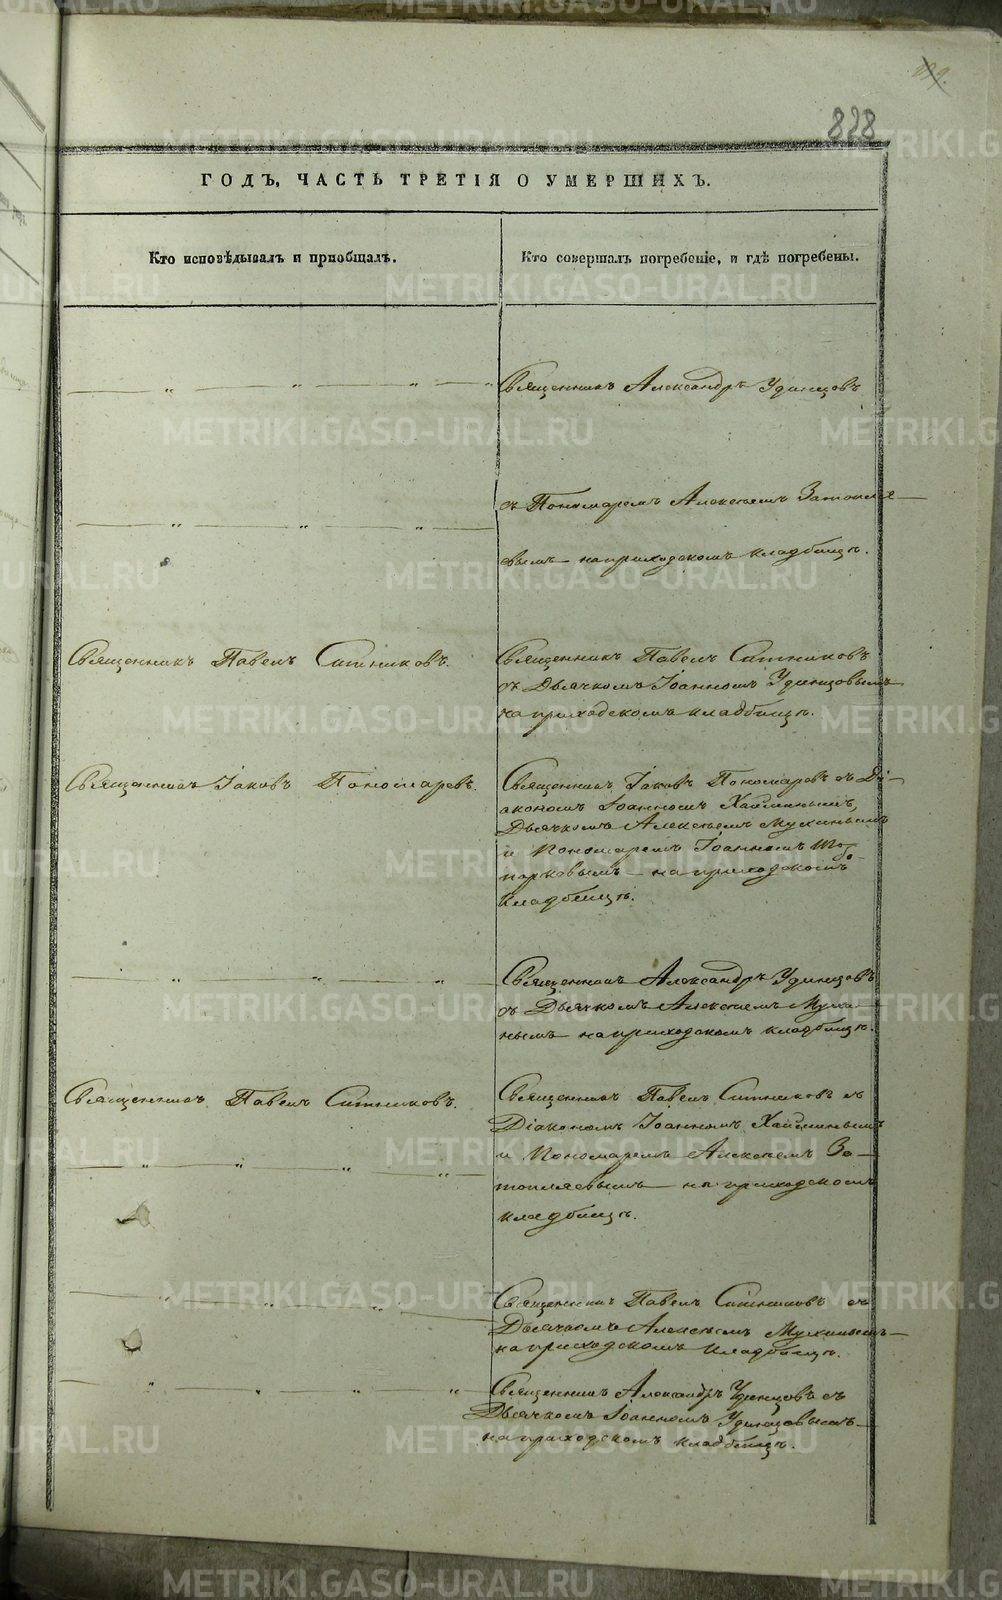 828
ГОДЪ, ЧАСТЬ ТРЕТІЯ О УМЕРШИХЪ.
Кто исповѣдывалъ и пріобщалъ.
Кто совершалъ погребеніе, и гдѣ погребены.
Священникъ Александръ Удинцовъ
съ Пономаремъ Алексѣемъ Затопля-
евымъ на приходскомъ кладбищѣ.
Священникъ Павелъ Ситниковъ.
Священникъ Павелъ Ситниковъ
съ Дьячкомъ Іоанномъ Удинцовымъ
на приходскомъ кладбищѣ.
Священникъ Іаковъ Пономаревъ.
Священникъ Іаковъ Пономаревъ съ Ді-
акономъ Іоанномъ Хайминымъ,
Дьячкомъ Алексѣемъ Мухинымъ
и Пономаремъ Іоанномъ
на приходскомъ
кладбищѣ.
Священникъ Александръ Удинцовъ
съ Дьячкомъ Алексѣемъ Мухи-
нымъ на приходскомъ кладбищѣ.
Священникъ Павелъ Ситниковъ.
Священникъ Павелъ Ситниковъ съ
Діакономъ Іоанномъ Хайминымъ
и Пономаремъ Алексѣемъ За-
топляевымъ на приходскомъ
кладбищѣ.
Священникъ Павелъ Ситниковъ съ
Дьячкомъ Алексѣемъ Мухинымъ
на приходскомъ кладбищѣ.
Священникъ Александръ Удинцовъ съ
Дьячкомъ Іоанномъ Удинцовымъ
на приходскомъ кладбищѣ.
METRIKI.GASO-URAL.RU